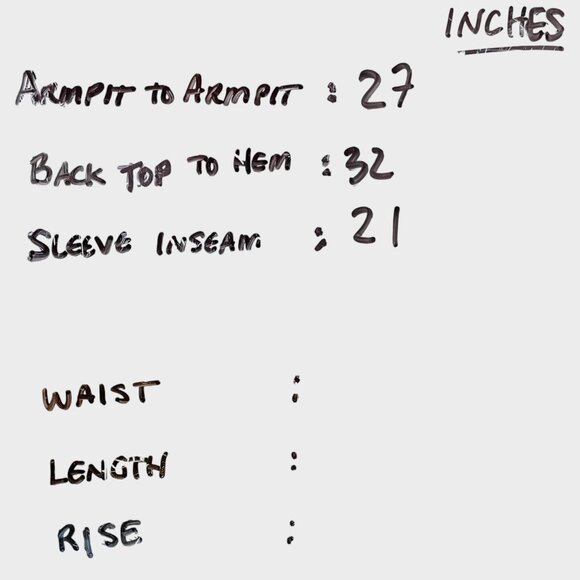 INCHES
ARMPIT TO ARMPIT : 27
BACK TOP TO HEM : 32
SLEEVE INSEAM : 21
WAIST :
LENGTH :
RISE :